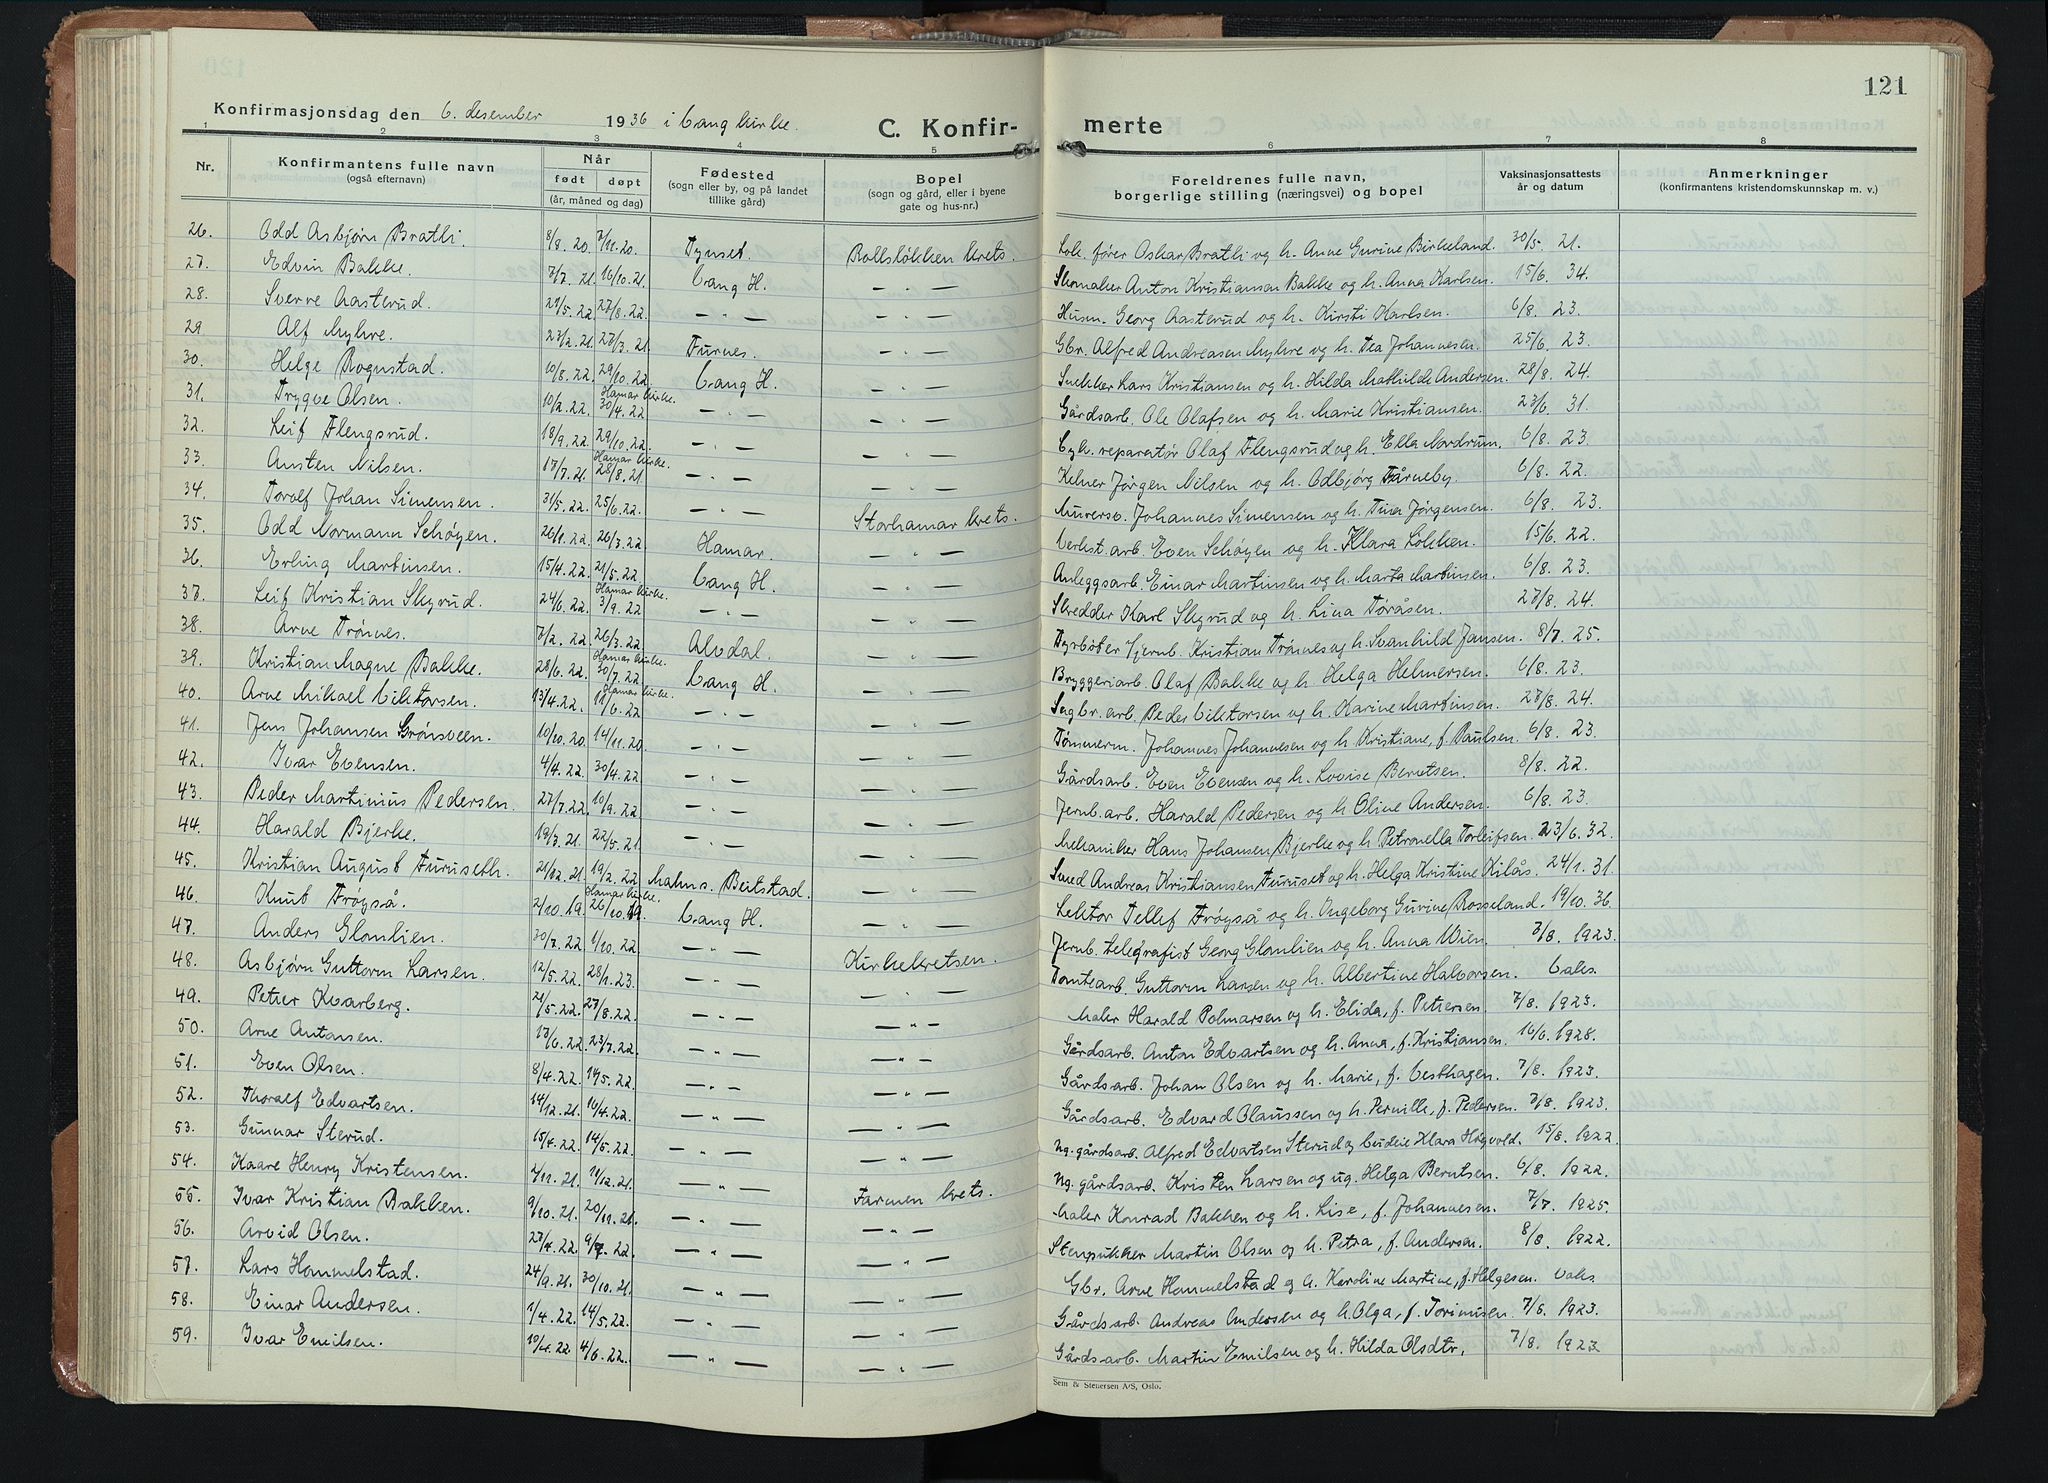 121
Konfirmasjonsdag den 6. desember 1936 i Vang kirke. C. Konfirmerte
1 2 3 4 5 6 7 8
Nr. Konfirmantens fulle navn (også efternavn) Når født døpt (år, måned og dag) Fødested (sogn eller by, og på landet tillike gård) Bopel (sogn og gård, eller i byene gate og hus-nr.) Foreldrenes fulle navn, borgerlige stilling (næringsvei) og bopel Vaksinasjonsattests år og datum Anmerkninger (konfirmantens kristendomskunnskap m. v.)
26. Odd Asbjørn Bratli. 8/8. 20. 7/11. 20. Tynset. Rollsløkken krets. Lok. fører Oskar Bratli og h. Anne Gurine Birkeland. 30/5. 21.
27. Edvin Bakke. 7/7. 21. 16/10. 21. Vang H. — " — Skomaker Anton Kristiansen Bakke og h. Anna Karlsen. 15/6. 34.
28. Sverre Aasterud. 29/5. 22. 27/8. 22. — " — — " — Husm. Georg Aasterud og h. Kirsti Karlsen. 6/8. 23.
29 Alf Myhre. 23/2. 21. 27/3. 21. Furnes. — " — Gbr. Alfred Andreasen Myhre og h. Tea Johannesen. 25/6. 23.
30. Helge Rognstad. 10/8. 22. 29/10. 22. Vang H. — " — Snekker Lars Kristiansen og h. Hilda Mathilde Andersen. 28/8. 24.
31. Trygve Olsen. 10/2. 22. Hamar kirke. 30/4. 22 — " — — " — Gårdsarb. Ole Olafsen og h. Marie Kristiansen. 23/6. 31.
32. Leif Flengsrud. 18/9. 22. 29/10. 22. — " — — " — Cyk. reparatør Olaf Flengsrud og h. Ella Nordrum. 6/8. 23.
33. Austen Nilsen. 17/7. 21. Hamar kirke. 28/8. 21. — " — — " — Kelner Jørgen Nilsen og h. Odbjørg Tårneby. 6/8. 22.
34. Toralf Johan Simensen. 31/5. 22. 25/6. 22. — " — Storhamar krets. Murersv. Johannes Simensen og h. Tina Jørgensen. 6/8. 23.
35. Odd Normann Schøyen. 26/1. 22. 26/3. 22. Hamar. — " — Verkst. arb. Even Schøyen og h. Klara Løkken. 15/6. 22.
36. Erling Martinsen. 15/4. 22. 21/5. 22. Vang H. — " — Anleggsarb. Einar Martinsen og h. Marta Martinsen. 6/8. 23.
37. Leif Kristian Skyrud. 24/6. 22. Hamar kirke. 3/9. 22 — " — — " — Skredder Karl Skyrud og h. Lina Toråsen. 27/8. 24.
38. Arne Trønes. 7/2. 22. 26/3. 22. Alvdal. — " — Fyrbøter v/jernb. Kristian Trønes og h. Svanhild Jansen. 8/7. 25.
39. Kristian Magne Bakke. 28/6. 22. Hamar kirke. 30/7. 22 Vang H. — " — Bryggeriarb. Olaf Bakke og h. Helga Helmersen. 6/8. 23.
40. Arne Mikael Viktorsen. 13/4. 22. Hamar kirke. 11/6. 22 — " — — " — Sagbr. arb. Peder Viktorsen og h. Karine Martinsen. 27/8. 24.
41. Jens Johansen Grønsveen. 10/10. 20. 14/11. 20. — " — — " — Tømmerm. Johannes Johannesen og h. Kristiane, f. Paulsen. 6/8. 23.
42. Ivar Evensen. 4/4. 22. 30/4. 22 — " — — " — Gårdsarb. Even Evensen og h. Lovise Berntsen. 8/8. 22.
43. Peder Martinius Pedersen. 27/7. 22. 10/9. 22 — " — — " — Jernb. arb. Harald Pedersen og h. Oline Andersen. 6/8. 23.
44. Harald Bjerke. 19/3. 21. 22/5. 21 — " — — " — Mekaniker Hans Johansen Bjerke og h. Petronella Torleifsen. 23/6. 32.
45. Kristian August Furuseth. 21/12. 21. 19/2. 22 Malms. Beitstad. — " — Smed Andreas Kristiansen Furuset og h. Helga Kristine Kilås. 24/1. 31.
46. Knut Trøyså. 2/10. 19. Hamar kirke. 26/10. 19. Vang H. — " — Lektor Tellef Trøyså og h. Ingeborg Gurine Rosseland. 19/10. 36.
47. Anders Glomlien. 30/7. 22. 1/10. 22 — " — Kirkekretsen. Jernb. telegrafist Georg Glomlien og h. Anna Wien. 7/8. 1923.
48. Asbjørn Guttorm Larsen. 12/5. 22. 28/1. 23. — " — — " — Tomtearb. Guttorm Larsen og h. Albertine Halvorsen. Vaks.
49. Petter Kvarberg. 21/5. 22. 27/8. 22. — " — — " — Maler Harald Polmarsen og h. Elida, f. Pettersen. 7/8. 1923.
50. Arne Antonsen. 17/6. 22. 23/7. 22. — " — — " — Gårdsarb. Anton Edvartsen og h. Anna, f. Kristiansen. 16/6. 1928.
51. Even Olsen. 8/4. 22. 14/5. 22. — " — — " — Gårdsarb. Johan Olsen og h. Marie, f. Vesthagen. 7/8. 1923.
52. Thoralf Edvartsen. 14/12. 21. 16/4. 22. — " — — " — Gårdsarb. Edvard Olaussen og h. Pernille, f. Pedersen. 7/8. 1923.
53. Gunnar Sterud. 15/4. 22. 14/5. 22. — " — — " — Ug. gårdsarb. Alfred Edvartsen Sterud og budeie Klara Høgvold. 15/8. 1922.
54. Kaare Henry Kristensen. 2/11. 21. 11/12. 21. — " — Farmen krets. Ug. gårdsarb. Kristen Larsen og ug. Helga Berntsen. 6/8. 1922.
55. Ivar Kristian Bakken. 9/10. 21. 20/11. 21. — " — — " — Maler Konrad Bakken og h. Lise, f. Johannesen. 7/7. 1925.
56. Arvid Olsen. 27/4. 22. 9/7. 22. — " — — " — Stensukker Martin Olsen og h. Petra, f. Andersen. 8/8. 1922.
57. Lars Hommelstad. 24/9. 21. 30/10. 21. — " — — " — Gbr. Arne Hommelstad og h. Karoline Martine, f. Helgesen. Vaks.
58. Einar Andersen. 1/4. 22. 14/5. 22. — " — — " — Gårdsarb. Andreas Andersen og h. Olga, f. Torimusen. 7/8. 1923.
59. Ivar Emilsen. 10/4. 22 4/6. 22. — " — — " — Gårdsarb. Martin Emilsen og h. Hilda Olsdtr. 7/8. 1923
Sem & Stenersen A/S, Oslo.